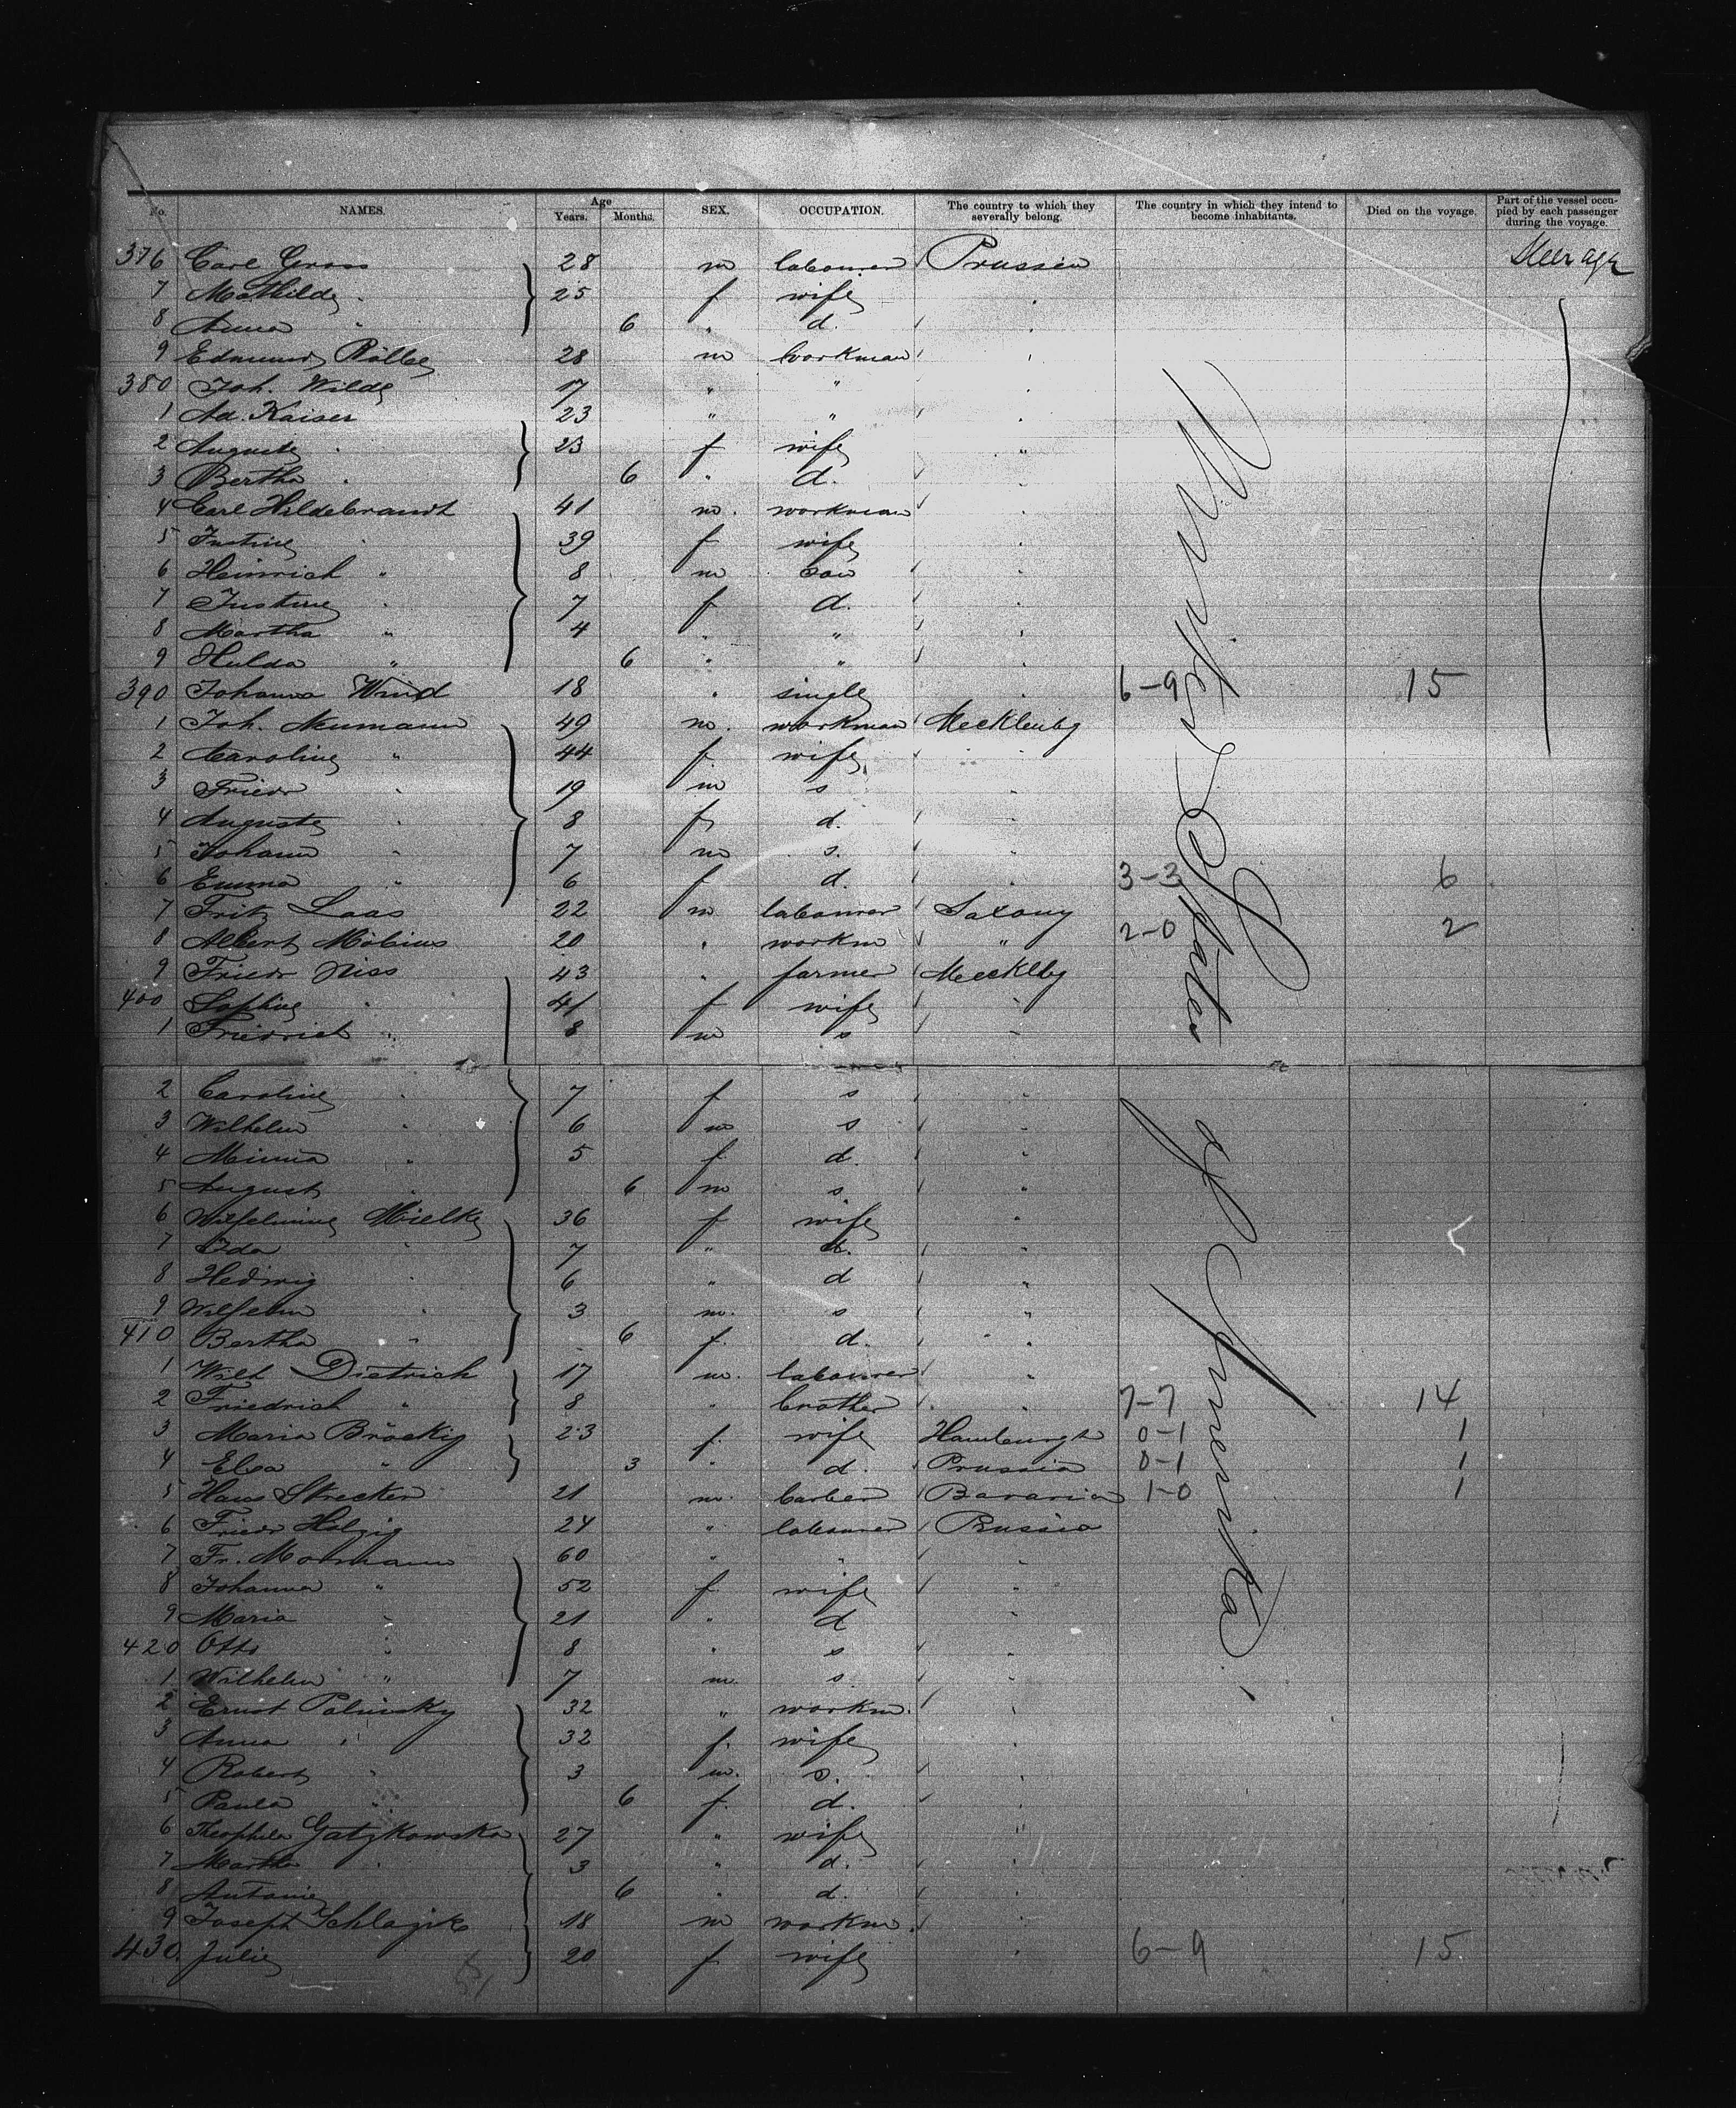 No. NAMES. Age Years. Months. SEX. OCCUPATION. The country to which they severally belong. The country in which they intend to become inhabitants. Died on the voyage. Part of the vessel occupied by each passenger during the voyage.
376 Carl Gross 28 m labourer Prussia Steerage
7 Mathilde " 25 f wife "
8 Anna " 6 " d. "
9 Edmund Rölle 28 m workman "
380 Joh. Wilde 17 " " "
1 Ad. Kaiser 23 " " "
2 Auguste " 23 f wife "
3 Bertha " 6 " d. "
4 Carl Hildebrandt 41 m. workman "
5 Justine " 39 f wife "
6 Heinrich " 8 m son "
7 Justine " 7 f d. "
8 Martha " 4 " " "
9 Hulda " 6 " " "
390 Johanna Wind 18 " single " 6-9 15
1 Joh. Neumann 49 m. workman Mecklenbg
2 Caroline " 44 f wife "
3 Friedr " 19 m s "
4 Auguste " 8 f d. "
5 Johann " 7 m s. "
6 Emma " 6 f d. " 3-3 6
7 Fritz Laas 22 m labourer Saxony
8 Albert Möbius 20 " workm " 2-0 2
9 Friedr Niss 43 " farmer Mecklbg
400 Sophie " 41 f wife "
1 Friedrich " 8 m s "
2 Caroline " 7 f s "
3 Wilhelm " 6 m s "
4 Minna " 5 f d. "
5 August " 6 m s "
6 Wilhelmine Mielke 36 f wife "
7 Ida " 7 " d. "
8 Hedwig " 6 " d "
9 Wilhelm " 3 m. s "
410 Bertha " 6 f. d. "
1 Wilh Dietrich 17 m. labourer "
2 Friedrich " 8 " brother " 7-7 14
3 Maria Bröckig 23 f. wife Hamburgh 0-1 1
4 Elsa " 3 " d. Prussia 0-1 1
5 Hans Strecker 21 m. barber Bavaria 1-0 1
6 Friedr Holzig 24 " labourer Prussia
7 Fr. Mormann 60 " " "
8 Johanna " 52 f wife "
9 Maria " 21 " d "
420 Otto " 8 " s "
1 Wilhelm " 7 m. s. "
2 Ernst Palinsky 32 " workm. "
3 Anna " 32 f. wife "
4 Robert " 3 m. s. "
5 Paula " 6 f. d. "
6 Theophila Gatzkowska 27 " wife "
7 Martha " 3 " d. "
8 Antonie 6 " d. "
9 Joseph 18 m workm. "
430 Julie 20 f wife " 6-9 15
United States
of Amerika!